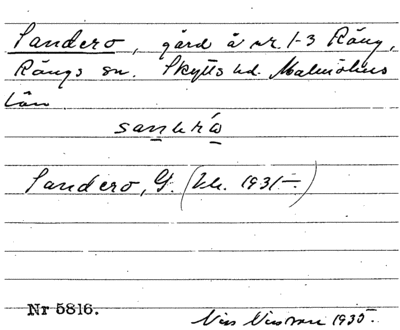 Sandero, gård å nr 1-3 Räng,
Rängs sn. Skytts hd. Malmöhus
län
Sandero, G. (bl. 1931-.)
Nr 5816.
Nils Nilsson 1935.